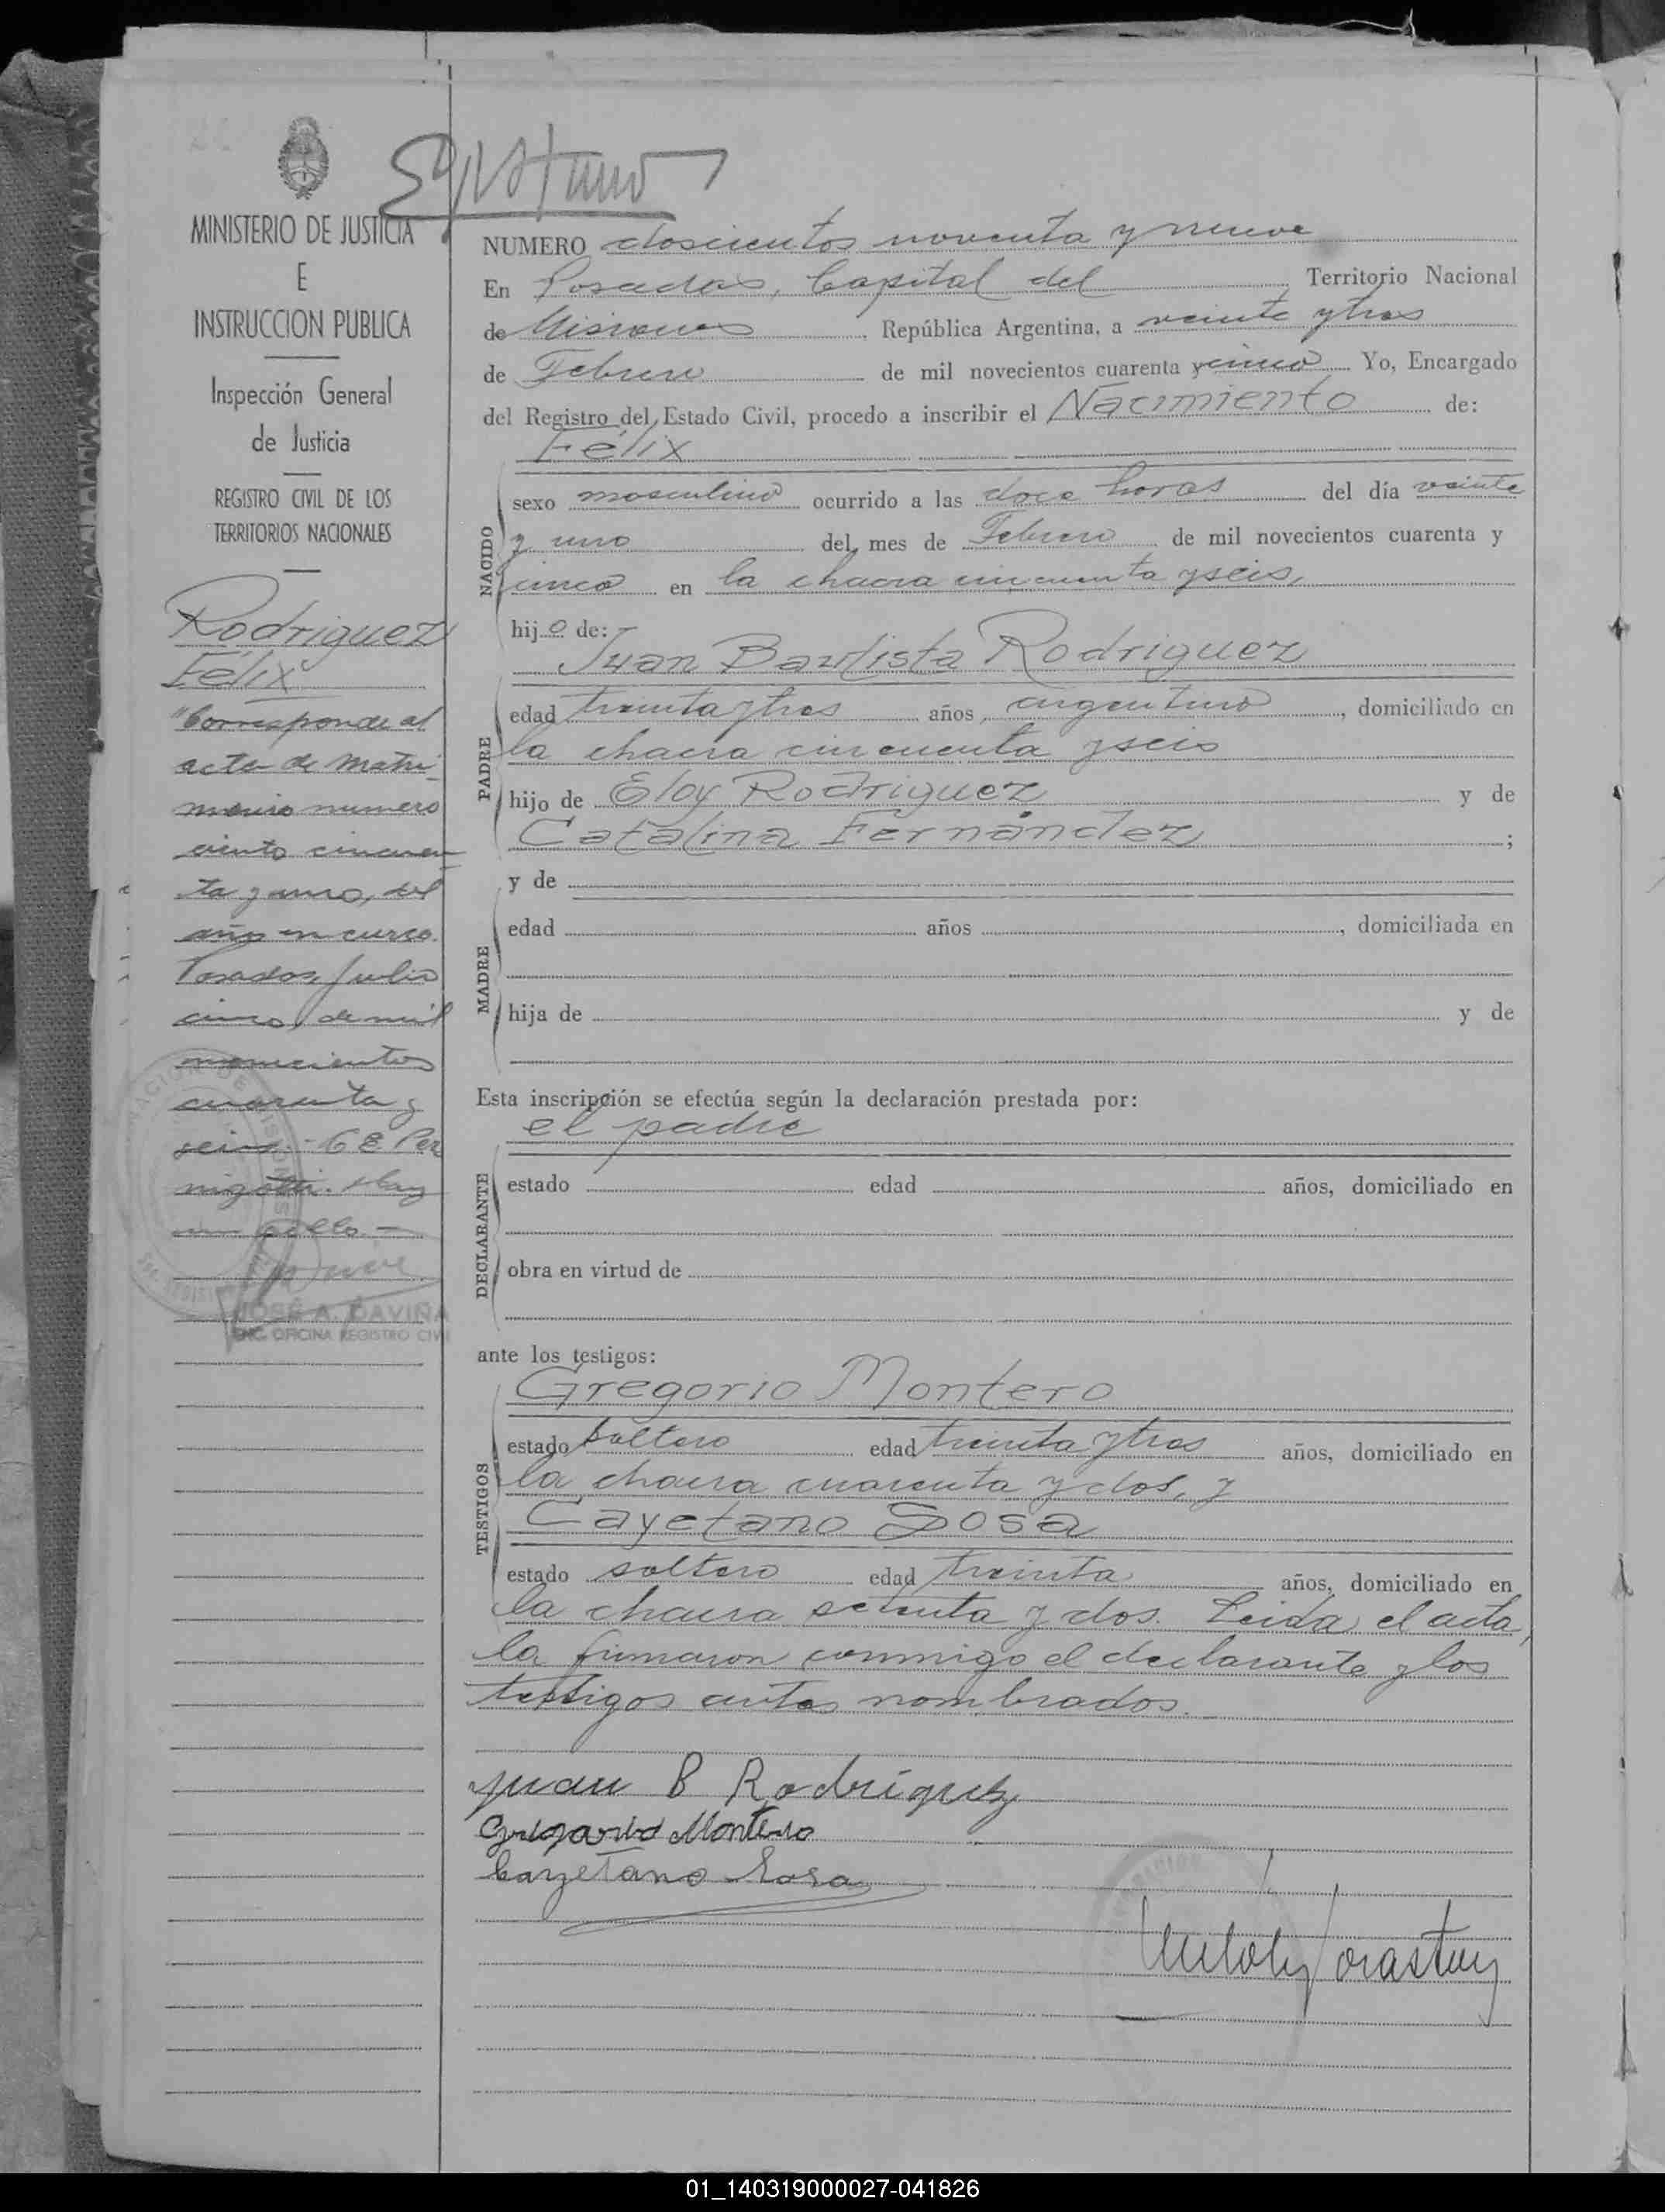 MINISTERIO DE JUSTICIA
E
INSTRUCCION PUBLICA
Inspección General
de Justicia
REGISTRO CIVIL DE LOS
TERRITORIOS NACIONALES
Rodriguez
Félix
"Corresponde al
acta de matri-
monio numero
ciento cincuen
ta y uno, del
año en curso.
Posadas, Julio
cinco de mil
novecientos
cuarenta y
seis.- Per
nigotti. Hay
un sello.-
JOSÉ A. DAVIÑA
ENC. OFICINA REGISTRO CIVIL
NUMERO doscientos noventa y nueve
En Posadas, Capital del Territorio Nacional
de Misiones República Argentina, a veinte y tres
de Febrero de mil novecientos cuarenta y cinco Yo, Encargado
del Registro del Estado Civil, procedo a inscribir el Nacimiento de:
Félix
NACIDO
sexo masculino ocurrido a las doce horas del día veinte
y uno del mes de Febrero de mil novecientos cuarenta y
cinco en la chacra cincuenta y seis,
hijo de:
Juan Bautista Rodriguez
PADRE
edad treinta y tres años, argentino, domiciliado en
la chacra cincuenta y seis
hijo de Eloy Rodriguez y de
Catalina Fernández ;
y de
MADRE
edad años , domiciliada en
hija de y de
Esta inscripción se efectúa según la declaración prestada por:
el padre
DECLARANTE
estado edad años, domiciliado en
obra en virtud de
ante los testigos:
Gregorio Montero
TESTIGOS
estado soltero edad treinta y tres años, domiciliado en
la chacra cuarenta y dos, y
Cayetano Sosa
estado soltero edad treinta años, domiciliado en
la chacra setenta y dos. Leida el acta,
la firmaron conmigo el declarante y los
testigos antes nombrados.
Juan B Rodríguez
Gregorio Montero
Cayetano Sosa
01_140319000027-041826